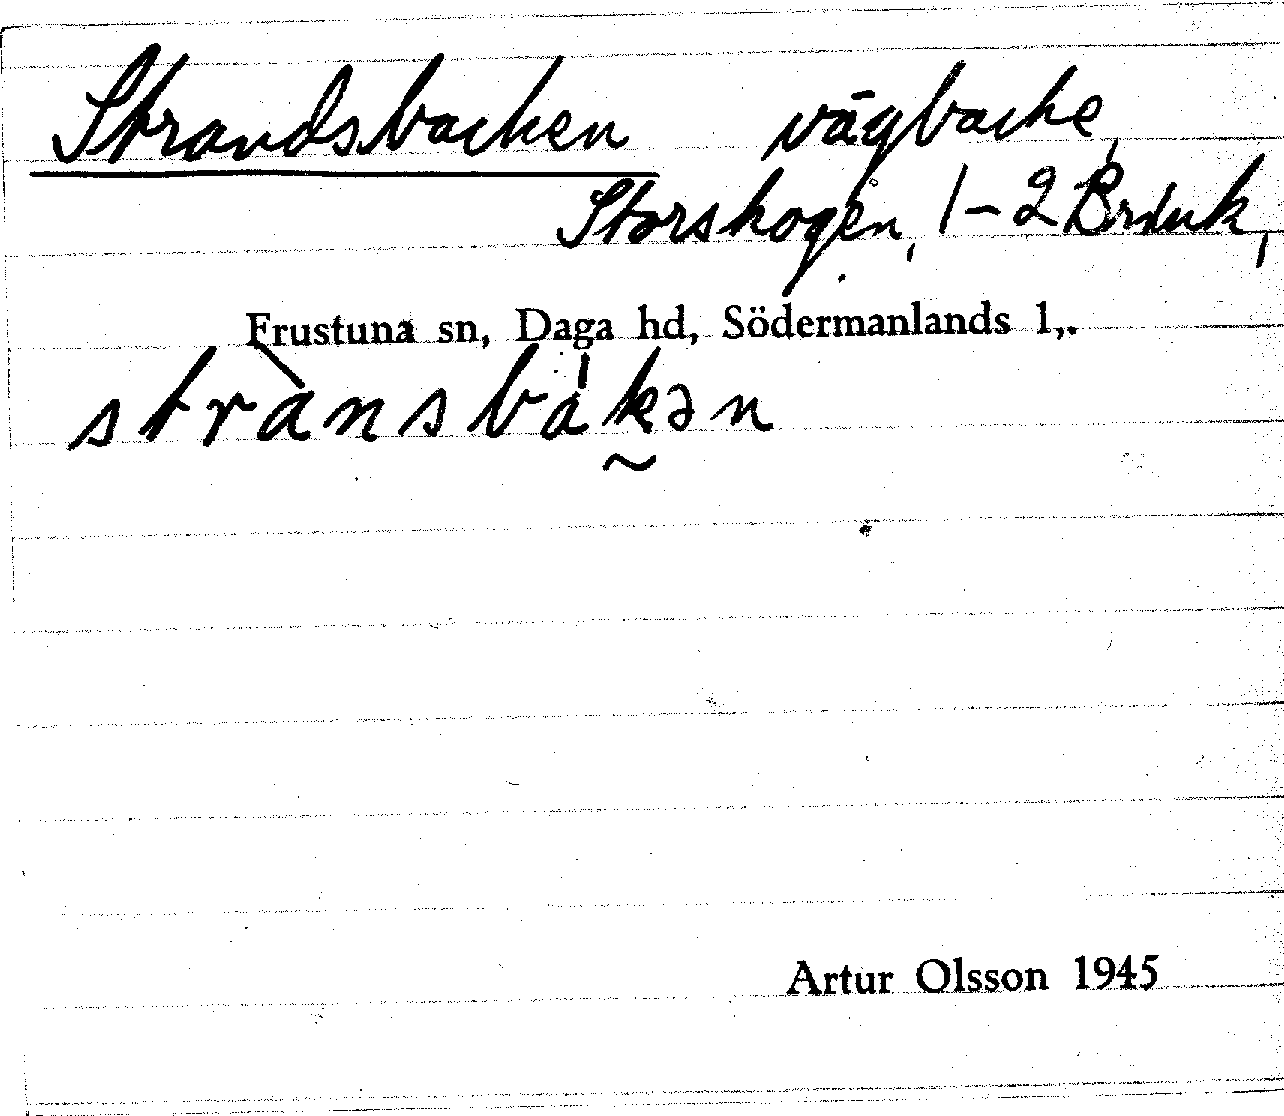 Strandsbacken vägbacke,
Storskogen, 1-2 Bråuk,
Frustuna sn, Daga hd, Södermanlands l,.
strànsbákən
Artur Olsson 1945